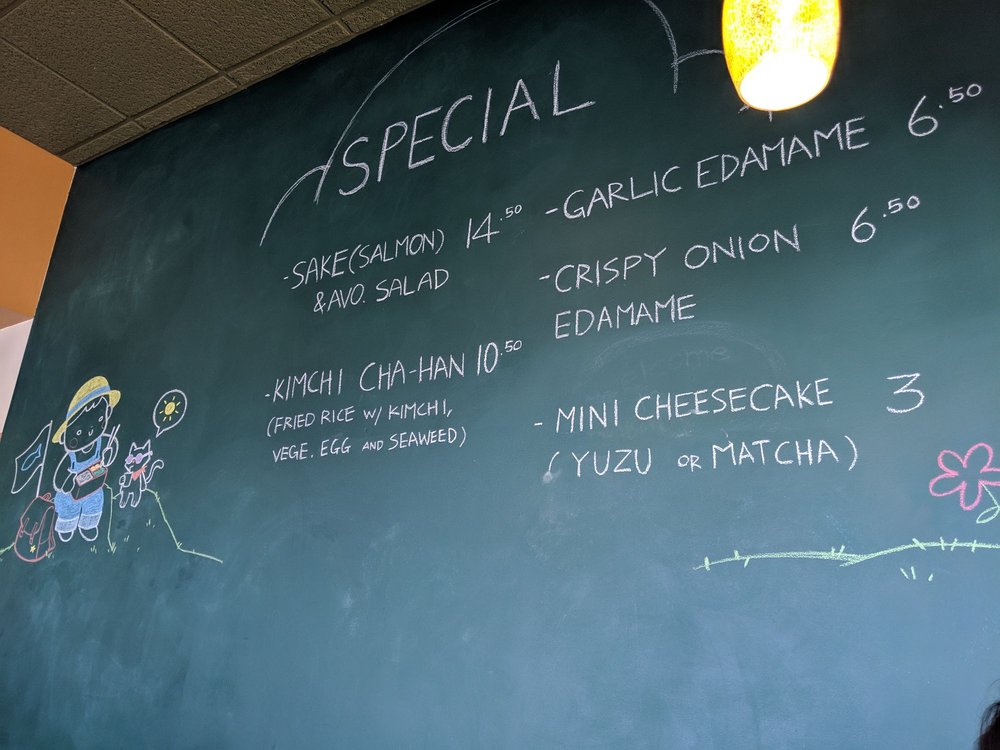 SPECIAL
-SAKE(SALMON) 14.50
&AVO. SALAD
-KIMCHI CHA-HAN 10.50
(FRIED RICE W/ KIMCHI,
VEGE. EGG AND SEAWEED)
-GARLIC EDAMAME 6.50
-CRISPY ONION 6.50
EDAMAME
- MINI CHEESECAKE 3
(YUZU OR MATCHA)